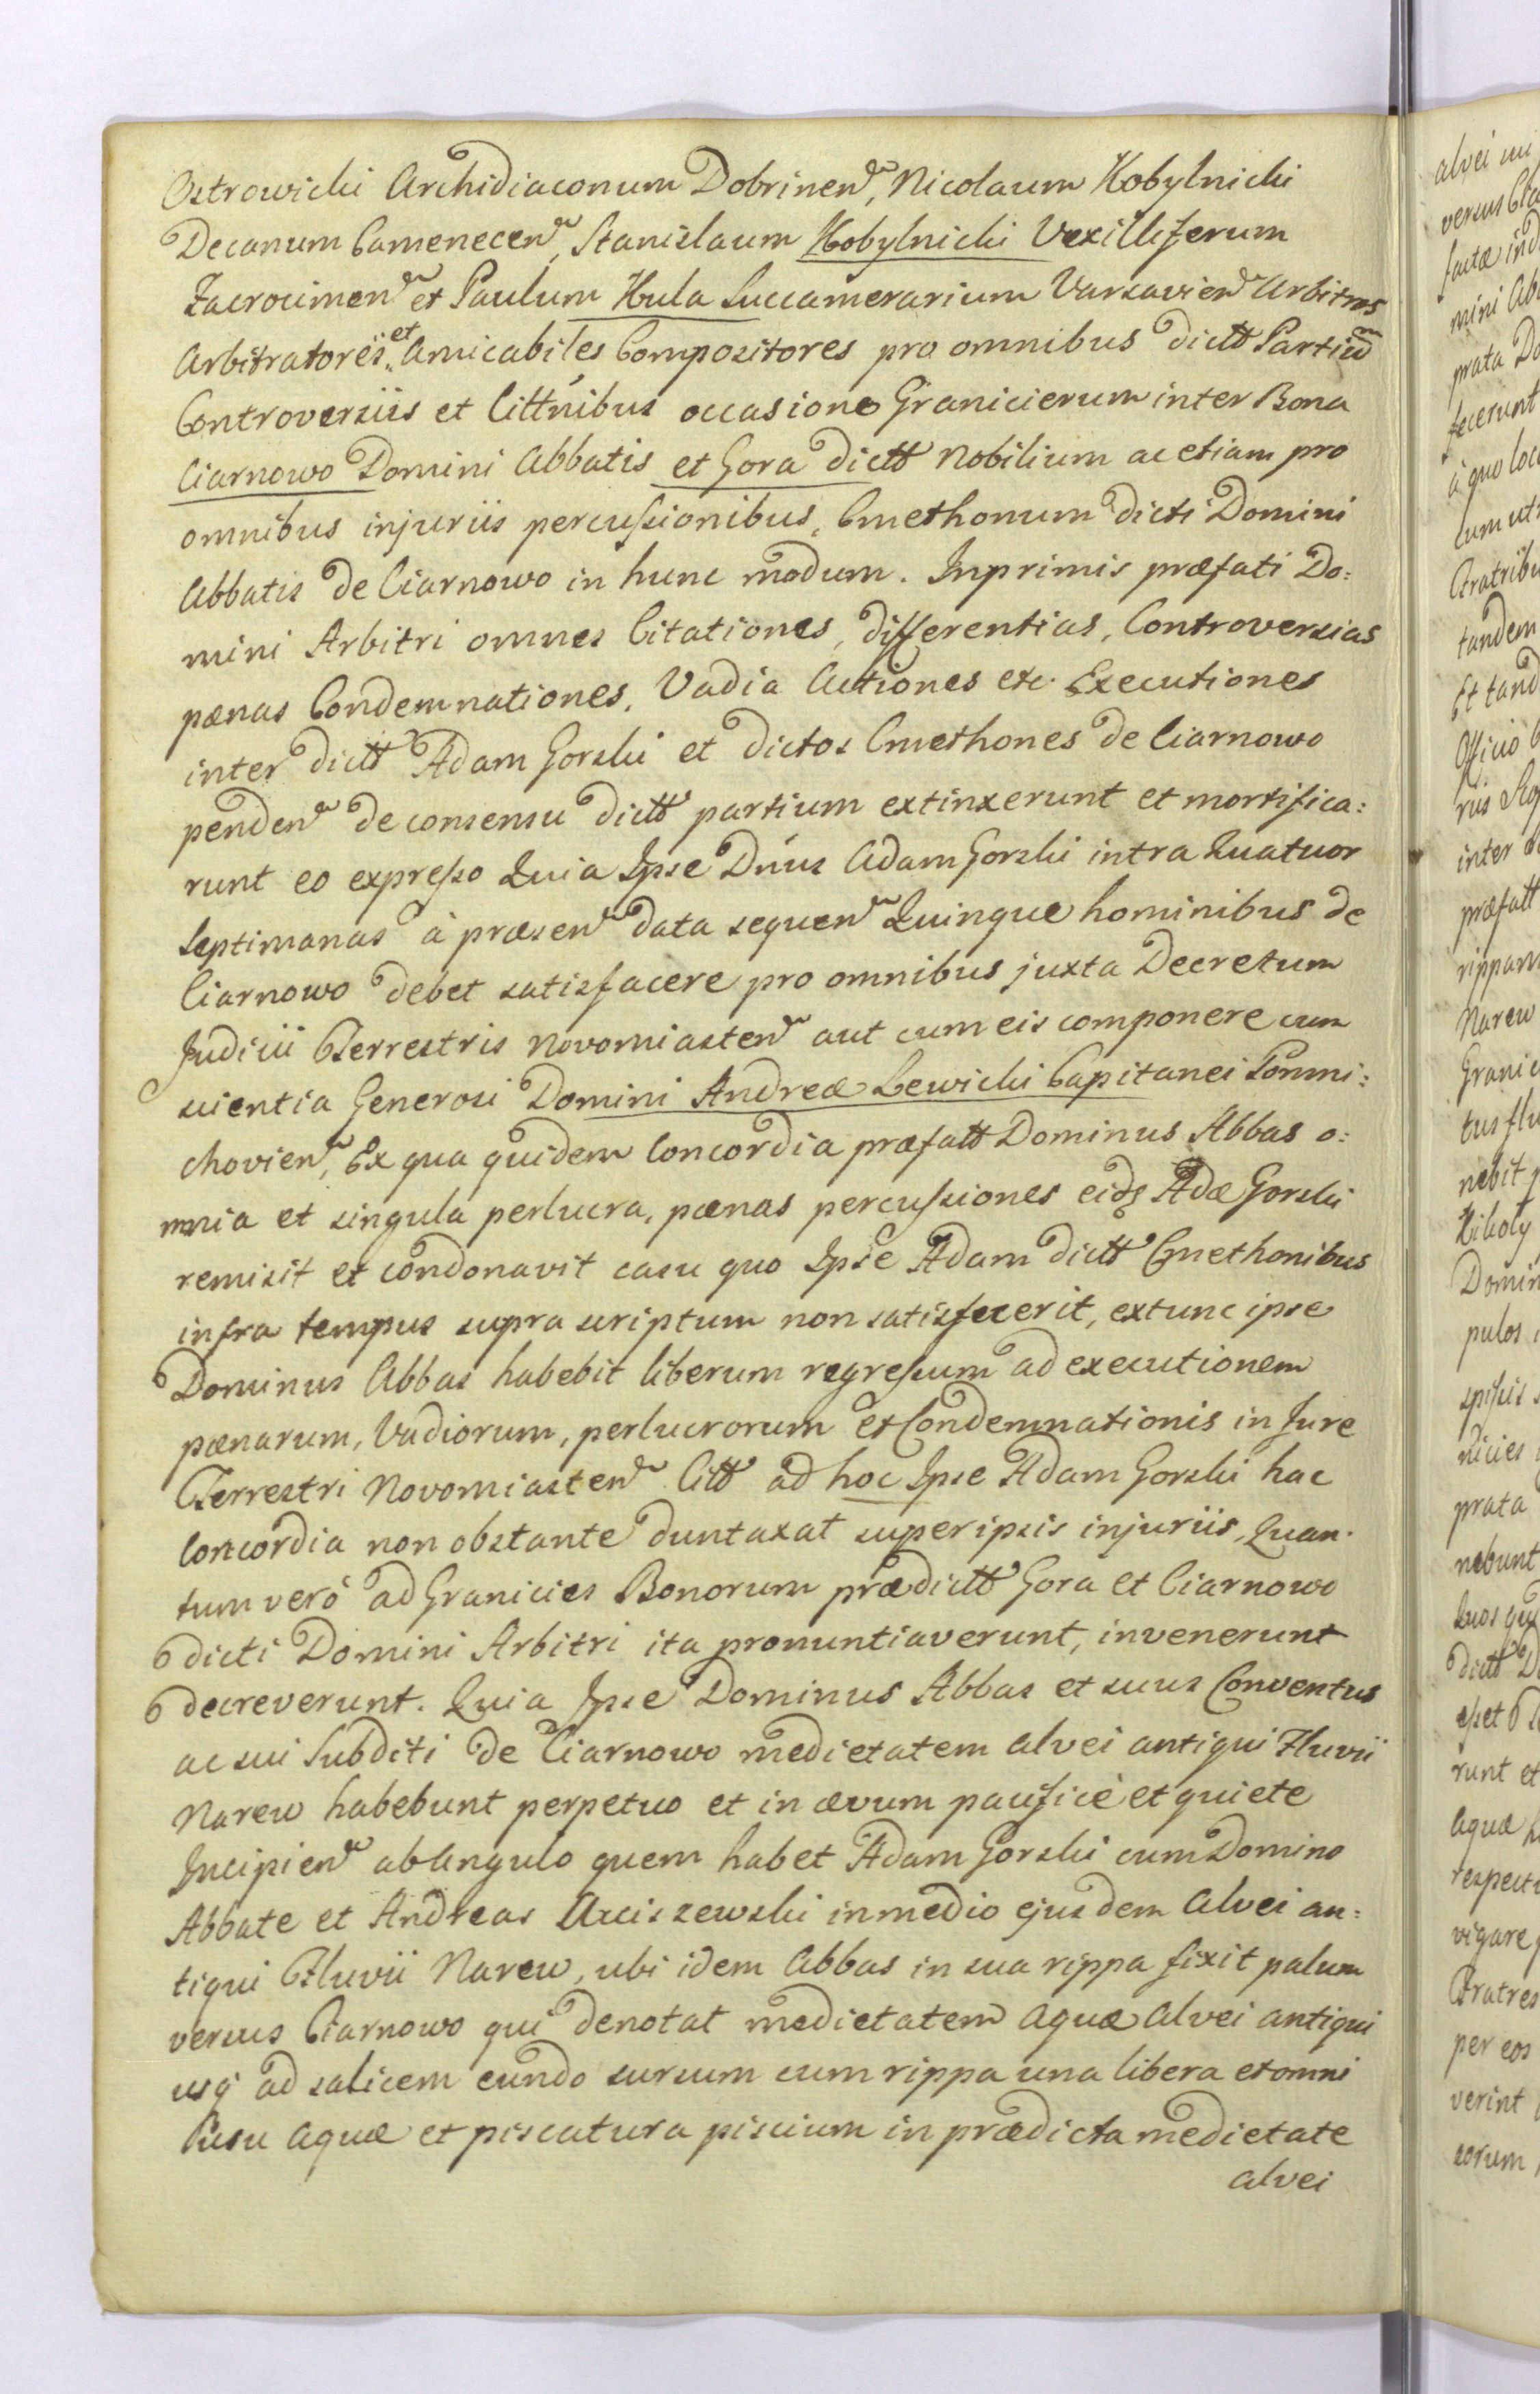 Ostrowicki Archidiaconum Dobrinen, Nicolaum Kobylnicki
Decanum Camenecen, Stanislaum Kobylnicki Vexilliferum
Zacrocimen et Paulum Hula Succamerarium Varsavien Arbitros
Arbitratores et Amicabiles Compositores pro omnibus dictt Partiū
Controversiis et Cittnibus occasione Granicierum inter Bona
Ciarnowo Domini Abbatis et Gora dictt Nobilium ac etiam pro
omnibus injuriis percussionibus, Cmethonum dicti Domini
Abbatis de Ciarnowo in hunc modum. Inprimis præfati Do:
mini Arbitri omnes Citationes, differentias, Controversias
pænas Condemnationes, Vadia Actiones etc. Executiones
inter dictt Adam Gorski et dictos Cmethones de Ciarnowo
penden de consensu dictt partium extinxerunt et mortifica:
runt eo expresso Quia Ipse Dnus Adam Gorski intra Quatuor
Septimanas à præsen data sequen Quinque hominibus de
Ciarnowo debet satisfacere pro omnibus juxta Decretum
Judicii Terrestris Novomiasten aut cum eis componere cum
scientia Generosi Domini Andreæ Lewicki Capitanei Pommi:
chovien, Ex qua quidem Concordia præfatt Dominus Abbas o:
mnia et singula perlucra, pænas percussiones eidq Adæ Gorski
remisit et condonavit casu quo Ipse Adam dictt Cmethonibus
infra tempus supra scriptum non satisfecerit, extunc ipse
Dominus Abbas habebit liberum regressum ad executionem
pænarum, Vadiorum, perlucrorum et Condemnationis in Jure
Terrestri Novomiasten Citt ad hoc Ipse Adam Gorski hac
Concordia non obstante duntaxat super ipsis injuriis, Quan.
tum verò ad Granicies Bonorum prædictt Gora et Ciarnowo
dicti Domini Arbitri ita pronuntiaverunt, invenerunt
decreverunt. Quia Ipse Dominus Abbas et suus Conventus
ac sui Subditi de Ciarnowo medietatem alvei antiqui Fluvii
Narew habebunt perpetuo et in ævum pacificè et quiete
Incipien ab Angulo quem habet Adam Gorski cum Domino
Abbate et Andreas Arciszewski in medio ejusdem Alvei an:
tiqui Fluvii Narew, ubi idem Abbas in sua rippa fixit palum
versus Ciarnowo qui denotat medietatem aquæ Alvei antiqui
usq ad salicem eundo sursum cum rippa una libera et omni
Cusu Aquæ et piscatura piscium in prædicta medietate
alvei